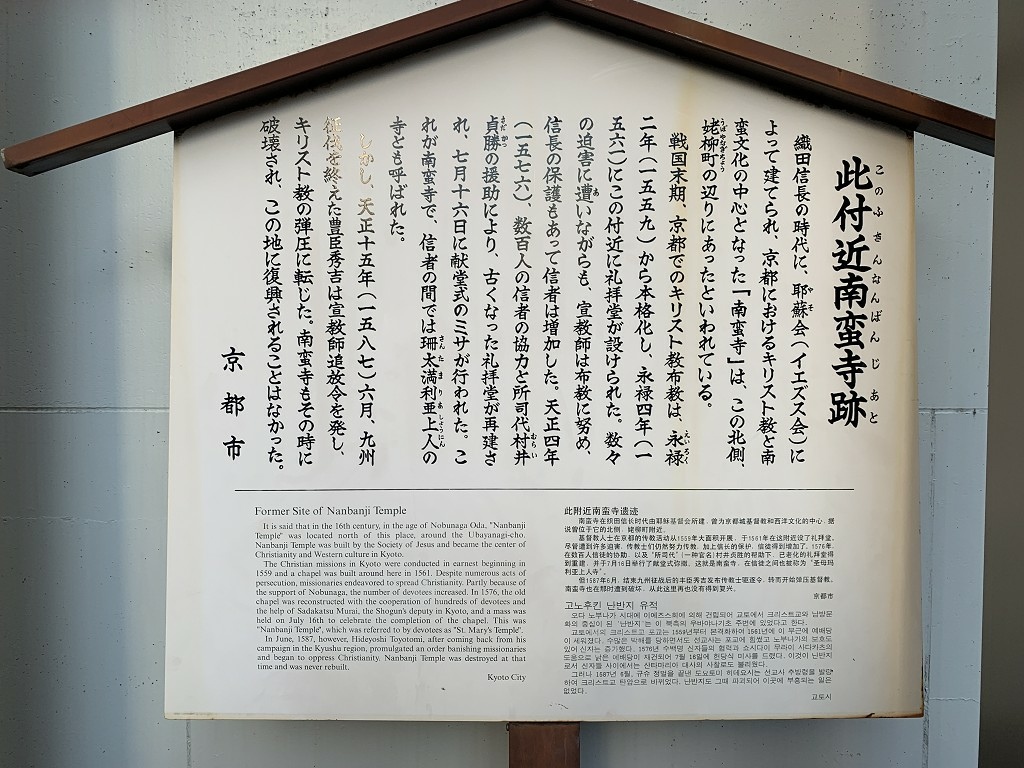 このふきんなんばんじあと
此付近南蛮寺跡
織田信長の時代に、耶蘇会（イエズス会）に
よって建てられ、京都におけるキリスト教と南
蛮文化の中心となった「南蛮寺」は、この北側、
姥柳町の辺りにあったといわれている。
戦国末期、京都でのキリスト教布教は、永禄
二年（一五五九）から本格化し、永禄四年（一
五六一）にこの付近に礼拝堂が設けられた。数々
の迫害に遭いながらも、宣教師は布教に努め、
信長の保護もあって信者は増加した。天正四年
（一五七六）、数百人の信者の協力と所司代村井
貞勝の援助により、古くなった礼拝堂が再建さ
れ、七月十六日に献堂式のミサが行われた。こ
れが南蛮寺で、信者の間では珊太満利亜上人の
寺とも呼ばれた。
しかし、天正十五年（一五八七）六月、九州
征伐を終えた豊臣秀吉は宣教師追放令を発し、
キリスト教の弾圧に転じた。南蛮寺もその時に
破壊され、この地に復興されることはなかった。
京都市
Former Site of Nanbanji Temple
It is said that in the 16th century, in the age of Nobunaga Oda, "Nanbanji
Temple" was located north of this place, around the Ubayanagi-cho.
Nanbanji Temple was built by the Society of Jesus and became the center of
Christianity and Western culture in Kyoto.
The Christian missions in Kyoto were conducted in earnest beginning in
1559 and a chapel was built around here in 1561. Despite numerous acts of
persecution, missionaries endeavored to spread Christianity. Partly because of
the support of Nobunaga, the number of devotees increased. In 1576, the old
chapel was reconstructed with the cooperation of hundreds of devotees and
the help of Sadakatsu Murai, the Shogun's deputy in Kyoto, and a mass was
held on July 16th to celebrate the completion of the chapel. This was
"Nanbanji Temple", which was referred to by devotees as "St. Mary's Temple".
In June, 1587, however, Hideyoshi Toyotomi, after coming back from his
campaign in the Kyushu region, promulgated an order banishing missionaries
and began to oppress Christianity. Nanbanji Temple was destroyed at that
time and was never rebuilt.
Kyoto City
此附近南蛮寺遗迹
南蛮寺在织田信长时代由耶稣基督会所建，曾为京都城基督教和西洋文化的中心，据
说曾位于它的北侧、姥柳町附近。
基督教人士在京都的传教活动从1559年大面积开展，于1561年在这附近设了礼拜堂。
尽管遭到许多迫害，传教士们仍然努力传教，加上信长的保护，信徒得到增加了。1576年，
在数百人信徒的协助，以及"所司代"（一种官名）村井贞胜的帮助下，已老化的礼拜堂得
到重建，并于7月16日举行了献堂式弥撒，这就是南蛮寺，在信徒之间也被称为"圣母玛
利亚上人寺"。
但1587年6月，结束九州征战后的丰臣秀吉发布传教士驱逐令，转而开始弹压基督教。
南蛮寺也在那时遭到破坏，从此这里再也没有得到复兴。
京都市
고노후킨 난반지 유적
오다 노부나가 시대에 이에즈스회에 의해 건립되어 교토에서 크리스트교와 남방문
화의 중심이 된 '난반지'는 이 북측의 우바야나기초 주변에 있었다고 한다.
교토에서의 크리스트교 포교는 1559년부터 본격화하여 1561년에 이 부근에 예배당
이 세워졌다. 수많은 박해를 당하면서도 선교사는 포교에 힘썼고 노부나가의 보호도
있어 신자는 증가했다. 1576년 수백명 신자들의 협력과 쇼시다이 무라이 사다카츠의
도움으로 낡은 예배당이 재건되어 7월 16일에 헌당식 미사를 드렸다. 이것이 난반지
로서 신자들 사이에서는 산타마리아 대사의 사찰로도 불리웠다.
그러나 1587년 6월, 규슈 정벌을 끝낸 도요토미 히데요시는 선교사 추방령을 발양
하여 크리스트교 탄압으로 바뀌었다. 난반지도 그때 파괴되어 이곳에 부흥되는 일은
없었다.
교토시